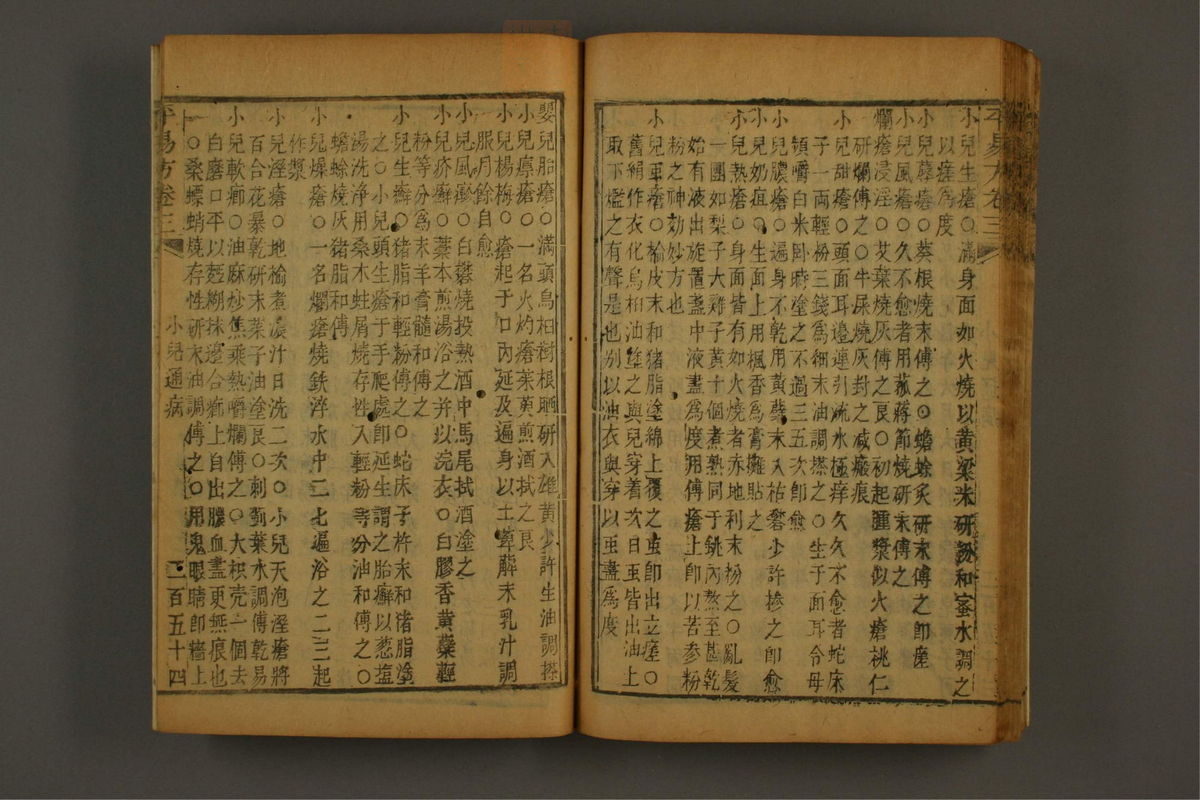 平易方卷三
小兒生瘡○滿身面如火燒以黃粱米研粉和蜜水調之
以痊爲度
小兒蓐瘡○葵根燒末傅之○蟾蜍炙研末傅之即痊
小兒風瘡○久不愈者用菰蔣節燒研末傅之
爛瘡浸淫○艾葉燒灰傅之良○初起腫漿似火瘡桃仁
研爛傅之○牛屎燒灰封之减瘢痕
小兒甜瘡○頭面耳邊連引流水極痒久久不愈者蛇床
子一兩輕粉三錢爲細末油調搽之○生于面耳令母
頻嚼白米臥時塗之不過三五次即愈
小兒膿瘡○遍身不乾用黃蘗末入枯礬少許摻之即愈
小兒奶疽○生面上用楓香爲膏攤貼之
小兒熱瘡○身面皆有如火燒者赤地利末粉之○亂髮
一團如梨子大雞子黃十個煮熟同于銚內熬至甚乾
始有液出旋置盞中液盡爲度用傅瘡上即以苦参粉
粉之神効妙方也
小兒虫瘡○榆皮末和猪脂塗綿上覆之虫即出立瘥○
舊絹作衣化烏桕油塗之與兒穿着次日虫皆出油上
取下爁之有聲是也别以油衣與穿以虫盡爲度
嬰兒胎瘡○滿頭烏桕樹根晒研入雄黃少許生油調搽
小兒瘭瘡○一名火灼瘡茱萸煎酒拭之良
小兒楊梅○瘡起于口內延及遍身以土萆薢末乳汁調
服月餘自愈
小兒風瘮○白礬燒投熱酒中馬尾拭酒塗之
小兒疥癬○藁本煎湯浴之并以浣衣○白膠香黃蘗輕
粉等分爲末羊膏髓和傅之
小兒生癬○猪脂和輕粉傅之○蛇床子杵末和猪脂塗
之○小兒頭生瘡于手爬處即延生謂之胎癬以葱塩
湯洗淨用桑木蛀屑燒存性入輕粉等分油和傅之○
蟾蜍燒灰猪脂和傅
小兒燥瘡○一名爛瘡燒鉄淬水中二七遍浴之二三起
作漿
小兒溼瘡○地榆煮濃汁日洗二次○小兒天泡溼瘡將
百合花暴乾研末菜子油塗良○刺薊葉水調傅乾易
小兒軟癤○油麻炒焦乘熱嚼爛傅之○大枳壳一個去
白磨口平以麪糊抹邊合癤上自出膿血盡更無痕也
○桑螵蛸燒存性研末油調傅之○用鬼眼睛即牆上
平易方卷三
小兒通病
二百五十四